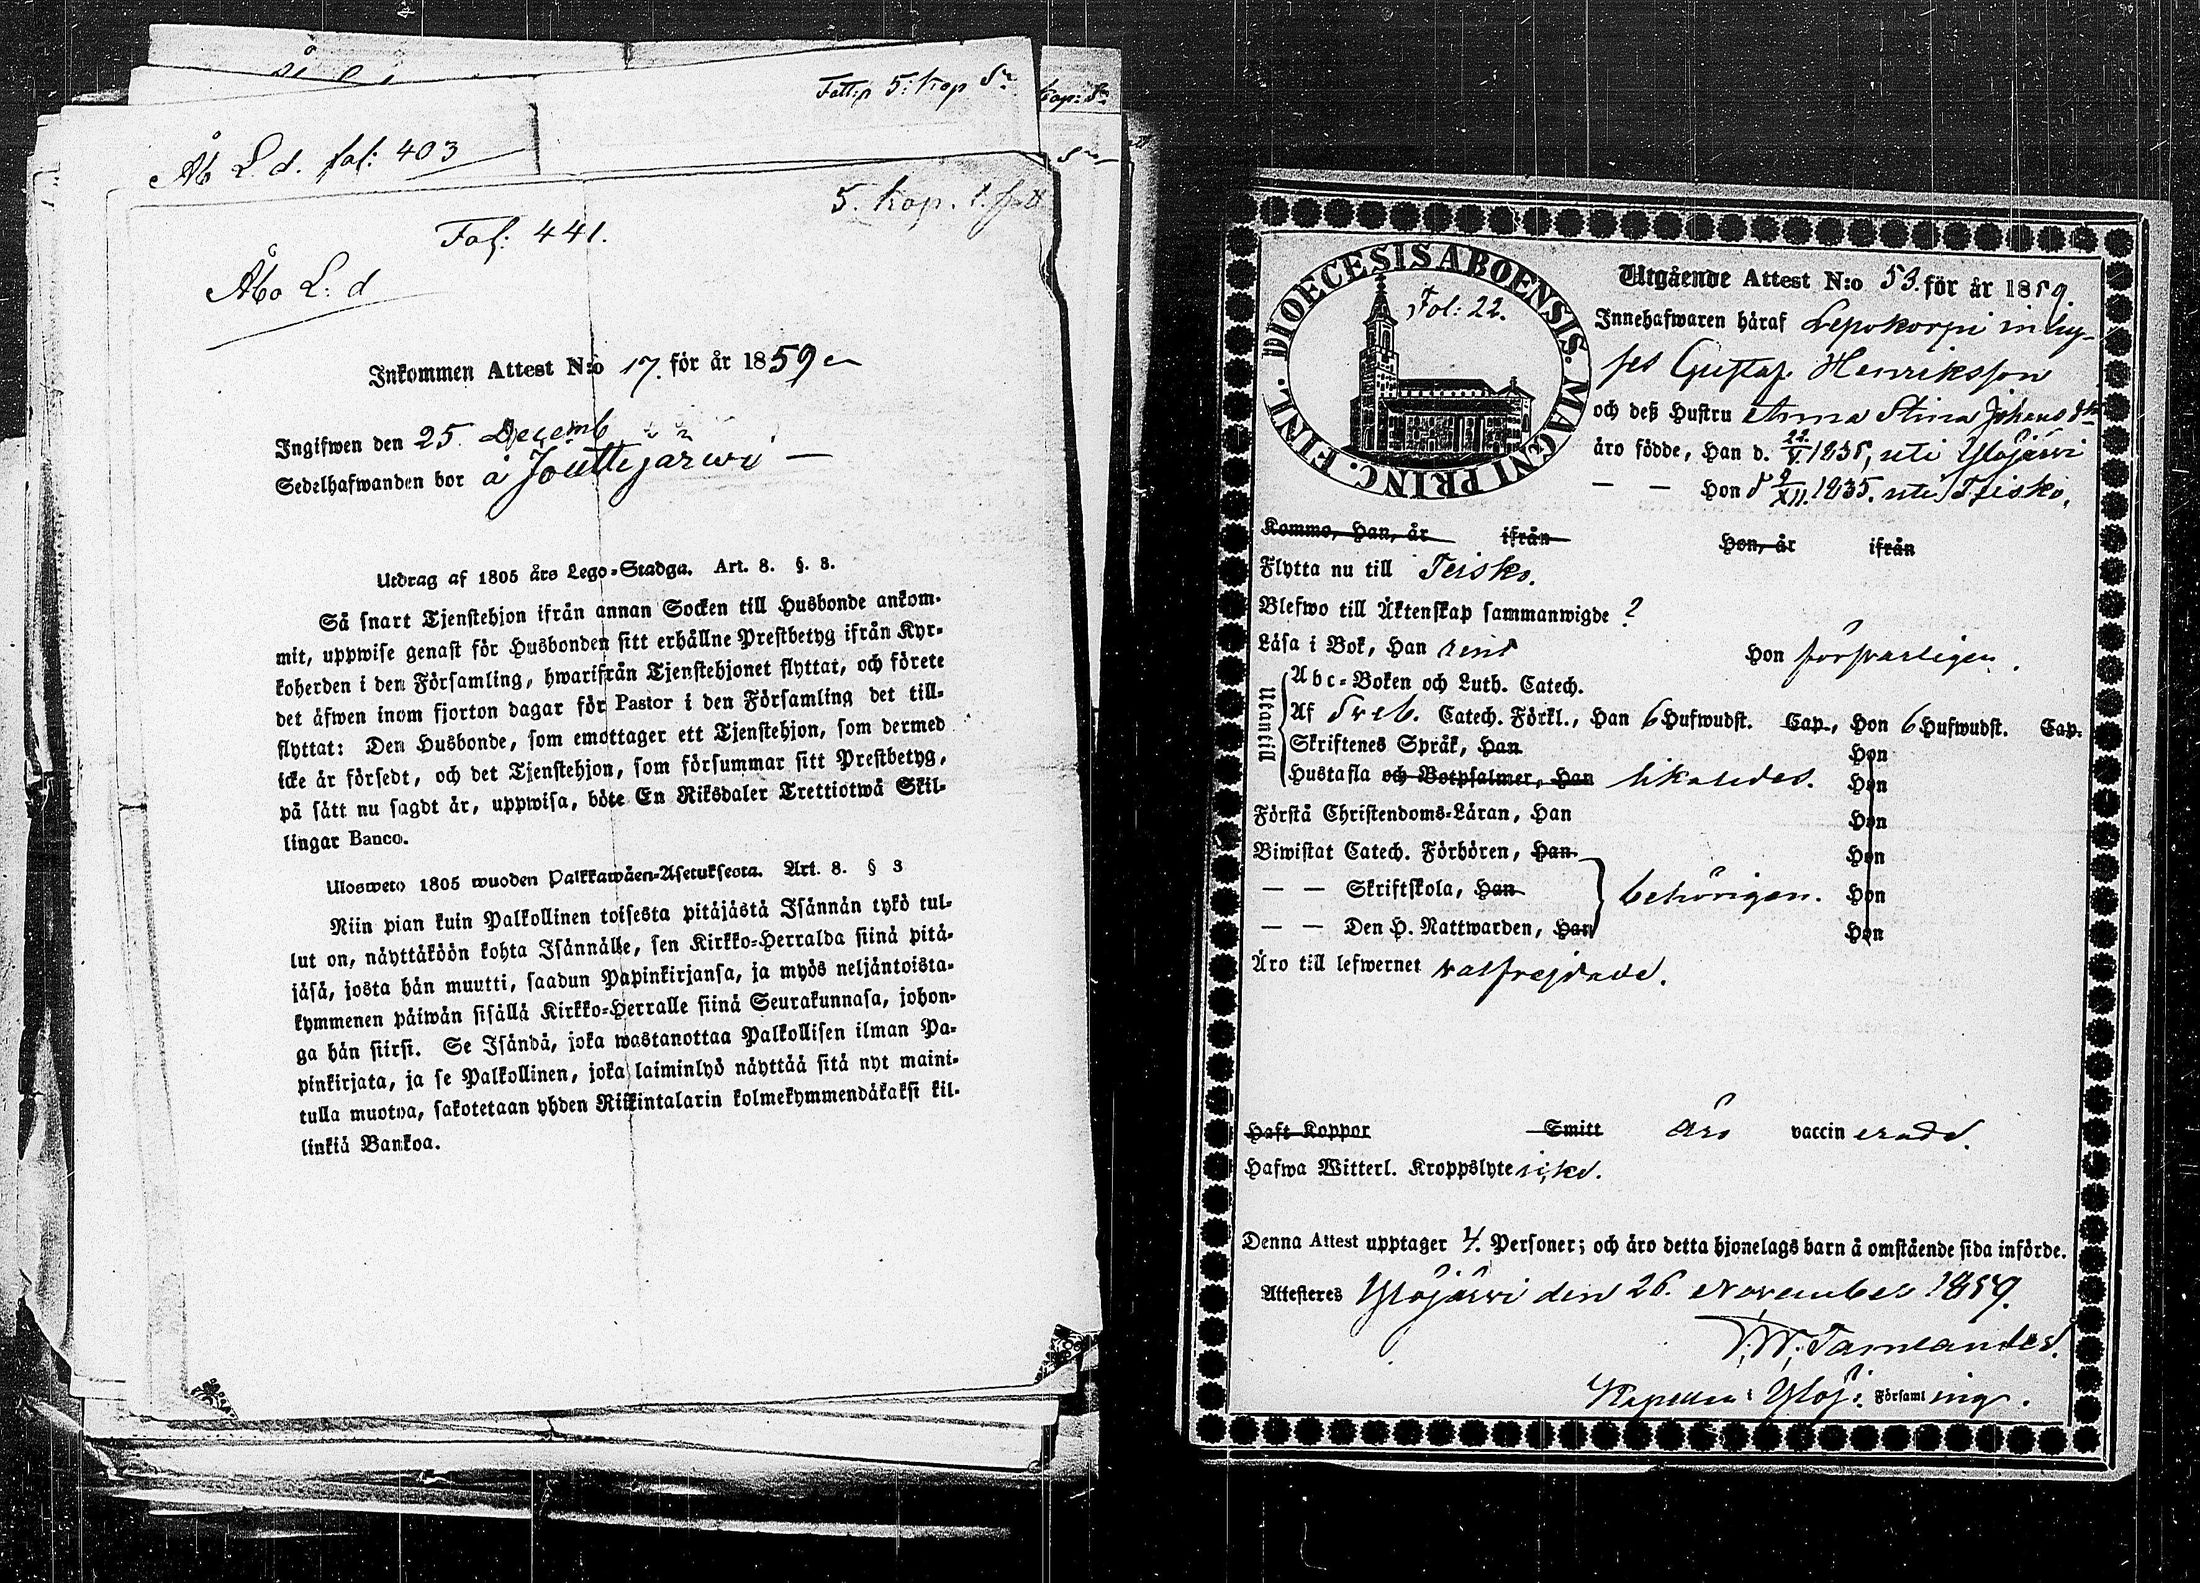 Fattip 5: kop Sr
Åb L. d. fol: 403
5. kop. t. fatt
Fol: 441.
Åbo L: d
Inkommen Attest N:o 17. för år 1859
Ingifwen den 25. Decemb
Sedelhafwanden bor å Jouttejärwi —
Utdrag af 1805 års Lego-Stadga. Art. 8. §. 3.
Så snart Tjenstehjon ifrån annan Socken till Husbonde ankom-
mit, uppwise genast för Husbonden sitt erhållne Prestbetyg ifrån Kyr-
koherden i den Församling, hwarifrån Tjenstehjonet flyttat, och förete
det äfwen inom fjorton dagar för Pastor i den Församling det till-
flyttat: Den Husbonde, som emottager ett Tjenstehjon, som dermed
icke är försedt, och det Tjenstehjon, som försummar sitt Prestbetyg,
på sätt nu sagdt är, uppwisa, böte En Riksdaler Trettiotwå Skil-
lingar Banco.
Ulosweto 1805 wuoden Palkkawäen-Asetuksesta. Art. 8. § 3
Niin pian kuin Palkollinen toisesta pitäjästä Isännän tykö tul-
lut on, näyttäköön kohta Isännälle, sen Kirkko-Herralda siinä pitä-
jäsä, josta hän muutti, saadun Papinkirjansa, ja myös neljäntoista-
kymmenen päiwän sisällä Kirkko-Herralle siinä Seurakunnasa, johon-
ga hän siirsi. Se Isändä, joka wastanottaa Palkollisen ilman Pa-
pinkirjata, ja se Palkollinen, joka laiminlyö näyttää sitä nyt maini-
tulla muotoa, sakotetaan yhden Riikintalarin kolmekymmendäkaksi kil-
linkiä Bankoa.
DIOECESIS ABOENSIS. MAGNI PRINC. FINL.
Fol: 22.
Utgående Attest N:o 53. för år 1859.
Innehafwaren häraf Lepokorpi inhy-
ses Gustaf Henriksson
och deß Hustru Anna Stina Johansdr
äro födde, Han d. 22/V. 1835, uti Ylöjärwi
— — Hon d 9/XII. 1835. uti Teisko.
Komme, Han, år ifrån Hon, år ifrån
Flytta nu till Teisko.
Blefwo till Äktenskap sammanwigde ?
Läsa i Bok, Han rent Hon försvarligen.
Utantill
Abc-Boken och Luth. Catech.
Af Sveb. Catech. Förkl., Han 6 Hufwudst. Cap., Hon 6 Hufwudst. Cap.
Skriftenes Språk, Han Hon
Hustafla och Botpsalmer, Han likaledes. Hon
Förstå Christendoms-Läran, Han Hon
Biwistat Catech. Förhören, Han Hon
— — Skriftskola, Han behörigen. Hon
— — Den H. Nattwarden, Han Hon
Äro till lefwernet välfrejdade.
Haft Koppor Smitt äro vaccin erade.
Hafwa Witterl. Kroppslyte icke.
Denna Attest upptager 4. Personer; och äro detta hjonelags barn å omstående sida införde.
Attesteres Ylöjärwi den 26. November 1859.
Kapellan i Ylöj: Församl ing.